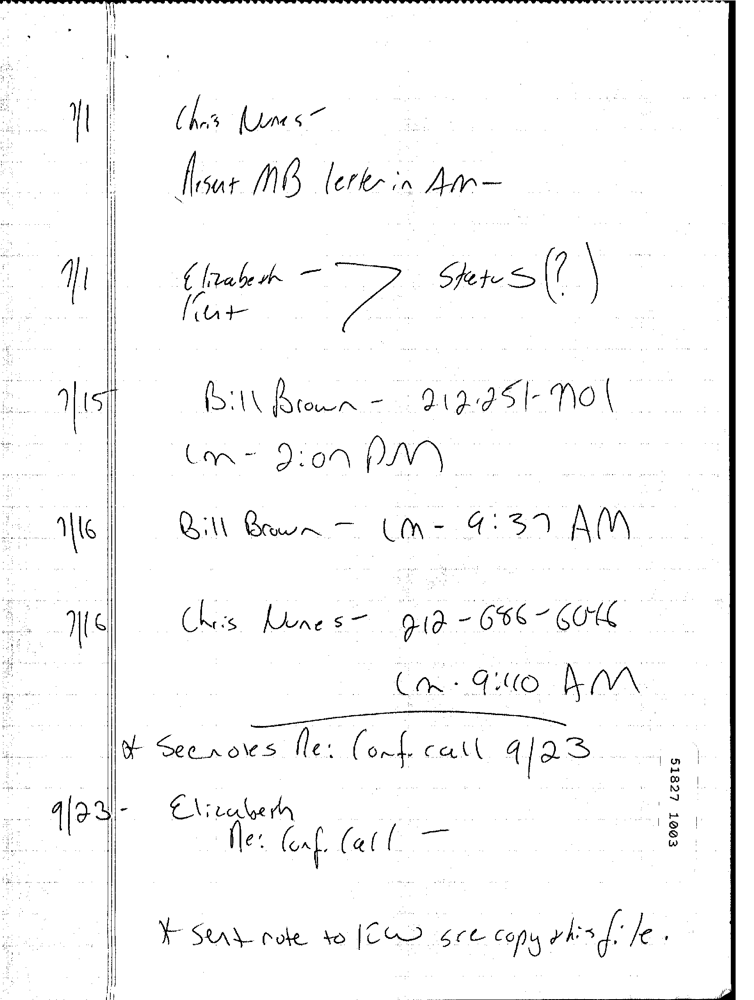 7/1 Chris Nunes-
Resent MB letter in AM-
7/1 Elizabeth - Status (?)
Kent
7/15 Bill Brown - 212-251-7701
LM - 2:07 PM
7/16 Bill Brown - LM - 9:37 AM
7/16 Chris Nunes - 212-686-6046
LM - 9:40 AM
* See notes Re: Conf. call 9/23
9/23 - Elizabeth
Re: Conf. Call -
* Sent note to KW see copy this file.
51827 1003